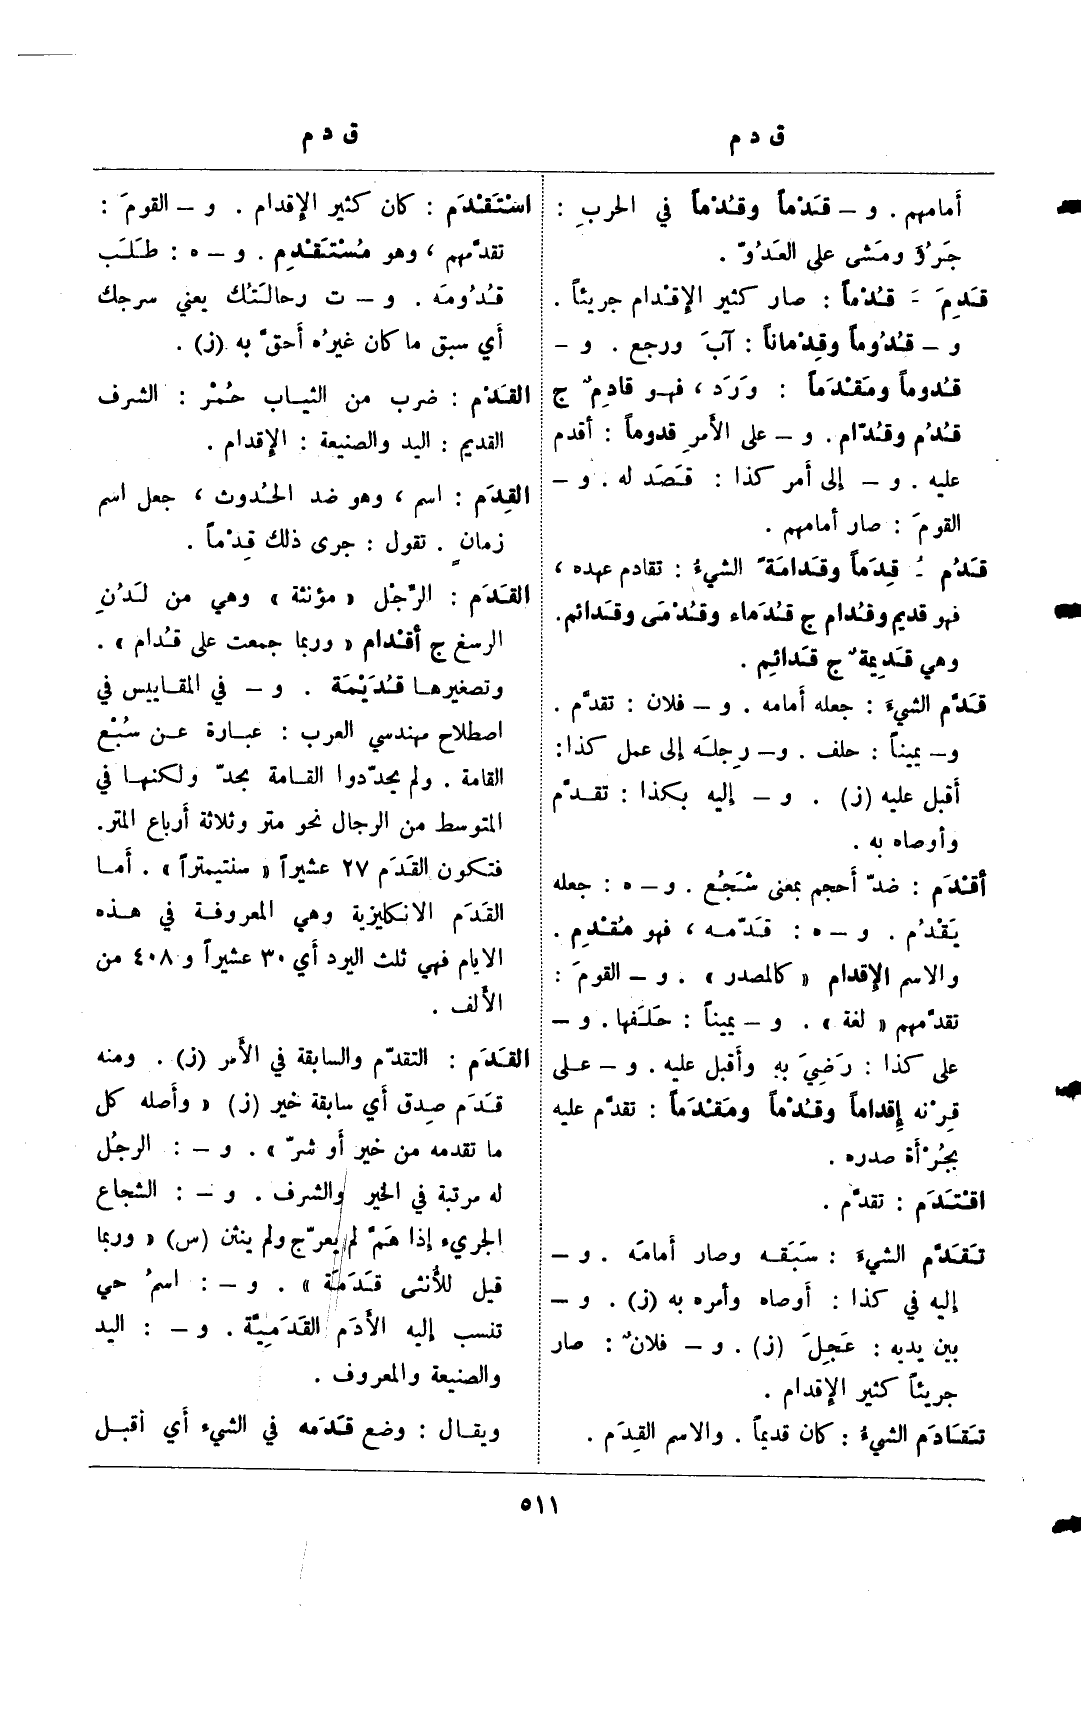 ق د م
ق د م
أمامهم . و – قَدْماً وقُدْماً في الحربِ :
جَرُؤَ ومَشى على العَدُوّ .
قَدِمَ ـَ قُدْماً : صار كثير الإقْدام جريئاً .
و – قُدُوماً وقِدْماناً : آبَ ورجع . و –
قُدوماً ومَقْدَماً : وَرَد ، فهو قادِمٌ ج
قُدُم وقُدّام . و – على الأمرِ قدوماً : أقدم
عليه . و – إلى أمر كذا : قَصَد له . و –
القومَ : صار أمامهم .
قَدُم ـُ قِدَماً وقَدامَةً الشيءُ : تقادم عهده ،
فهو قديم وقُدام ج قُدَماء وقُدْمَى وقَدائم.
وهي قَديمةٌ ج قَدائِم .
قَدَّم الشيءَ : جعله أمامه . و – فلان : تقدَّم .
و– يميناً : حلف . و– رِجلَه إلى عمل كذا :
أقبل عليه (ز) . و – إليه بكذا : تقدَّم
وأوصاه به .
أقْدَم : ضدّ أحجم بمعنى شَجُع . و – ه : جعله
يَقْدُم . و – ه : قَدّمه ، فهو مُقْدِم .
والاسم الإقدام « كالمصدر » . و – القومَ :
تقدَّمهم « لغة » . و – يميناً : حَلَفها . و –
على كذا : رَضِيَ بِهِ وأقبل عليه . و – على
قِرْنه إقداماً وقُدْماً ومَقْدَماً : تقدَّم عليه
بجُرْأة صدره .
اقْتَدَم : تقدَّم .
تَقَدَّم الشيءَ : سَبَقه وصار أمامَه . و –
إليه في كذا : أوصاه وأمره به (ز) . و –
بين يديه : عَجِلَ (ز) . و – فلانٌ : صار
جريئاً كثير الإقدام .
تَقَادَم الشيءُ : كان قديماً . والاسم القِدَم .
اسْتَقْدَم : كان كثير الإقدام . و – القومَ :
تقدَّمهم ، وهو مُسْتَقْدِم . و – ه : طَلَب
قُدُومَه . و – ت رحالَتُك يعني سرجك
أي سبق ما كان غيرُه أحقَّ به (ز) .
القَدْم : ضرب من الثياب حُمْر : الشرف
القديم : اليد والصنيعة : الإقدام .
القِدَم : اسم ، وهو ضد الحُدوث ، جعل اسم
زمانٍ . تقول : جرى ذلك قِدْماً .
القَدَم : الرّجْل « مؤنثة » وهي من لَدُنِ
الرسغ ج أقْدام « وربما جمعت على قُدام » .
وتصغيرها قُدَيْمَة . و – في المقاييس في
اصطلاح مهندسي العرب : عبارة عن سُبْع
القامة . ولم يحدّدوا القامة بحدّ ولكنها في
المتوسط من الرجال نحو متر وثلاثة أرباع المتر.
فتكون القَدَم ٢٧ عشيراً « سنتيمتراً » . أما
القَدَم الانكليزية وهي المعروفة في هذه
الايام فهي ثلث اليرد أي ٣٠ عشيراً و ٤٠٨ من
الألف .
القَدَم : التقدّم والسابقة في الأمر (ز) . ومنه
قَدَم صِدق أي سابقة خير (ز) « وأصله كل
ما تقدمه من خير أو شرّ » . و – : الرجلُ
له مرتبة في الخير والشرف . و – : الشجاع
الجريء إذا هَمَّ لم يعرّج ولم ينثن (س) « وربما
قيل للأُنثى قَدَمَة » . و – : اسمُ حي
تنسب إليه الأدَم القَدَمِيَّة . و – : اليد
والصنيعة والمعروف .
ويقال : وضع قَدَمه في الشيء أي أقبل
٥١١